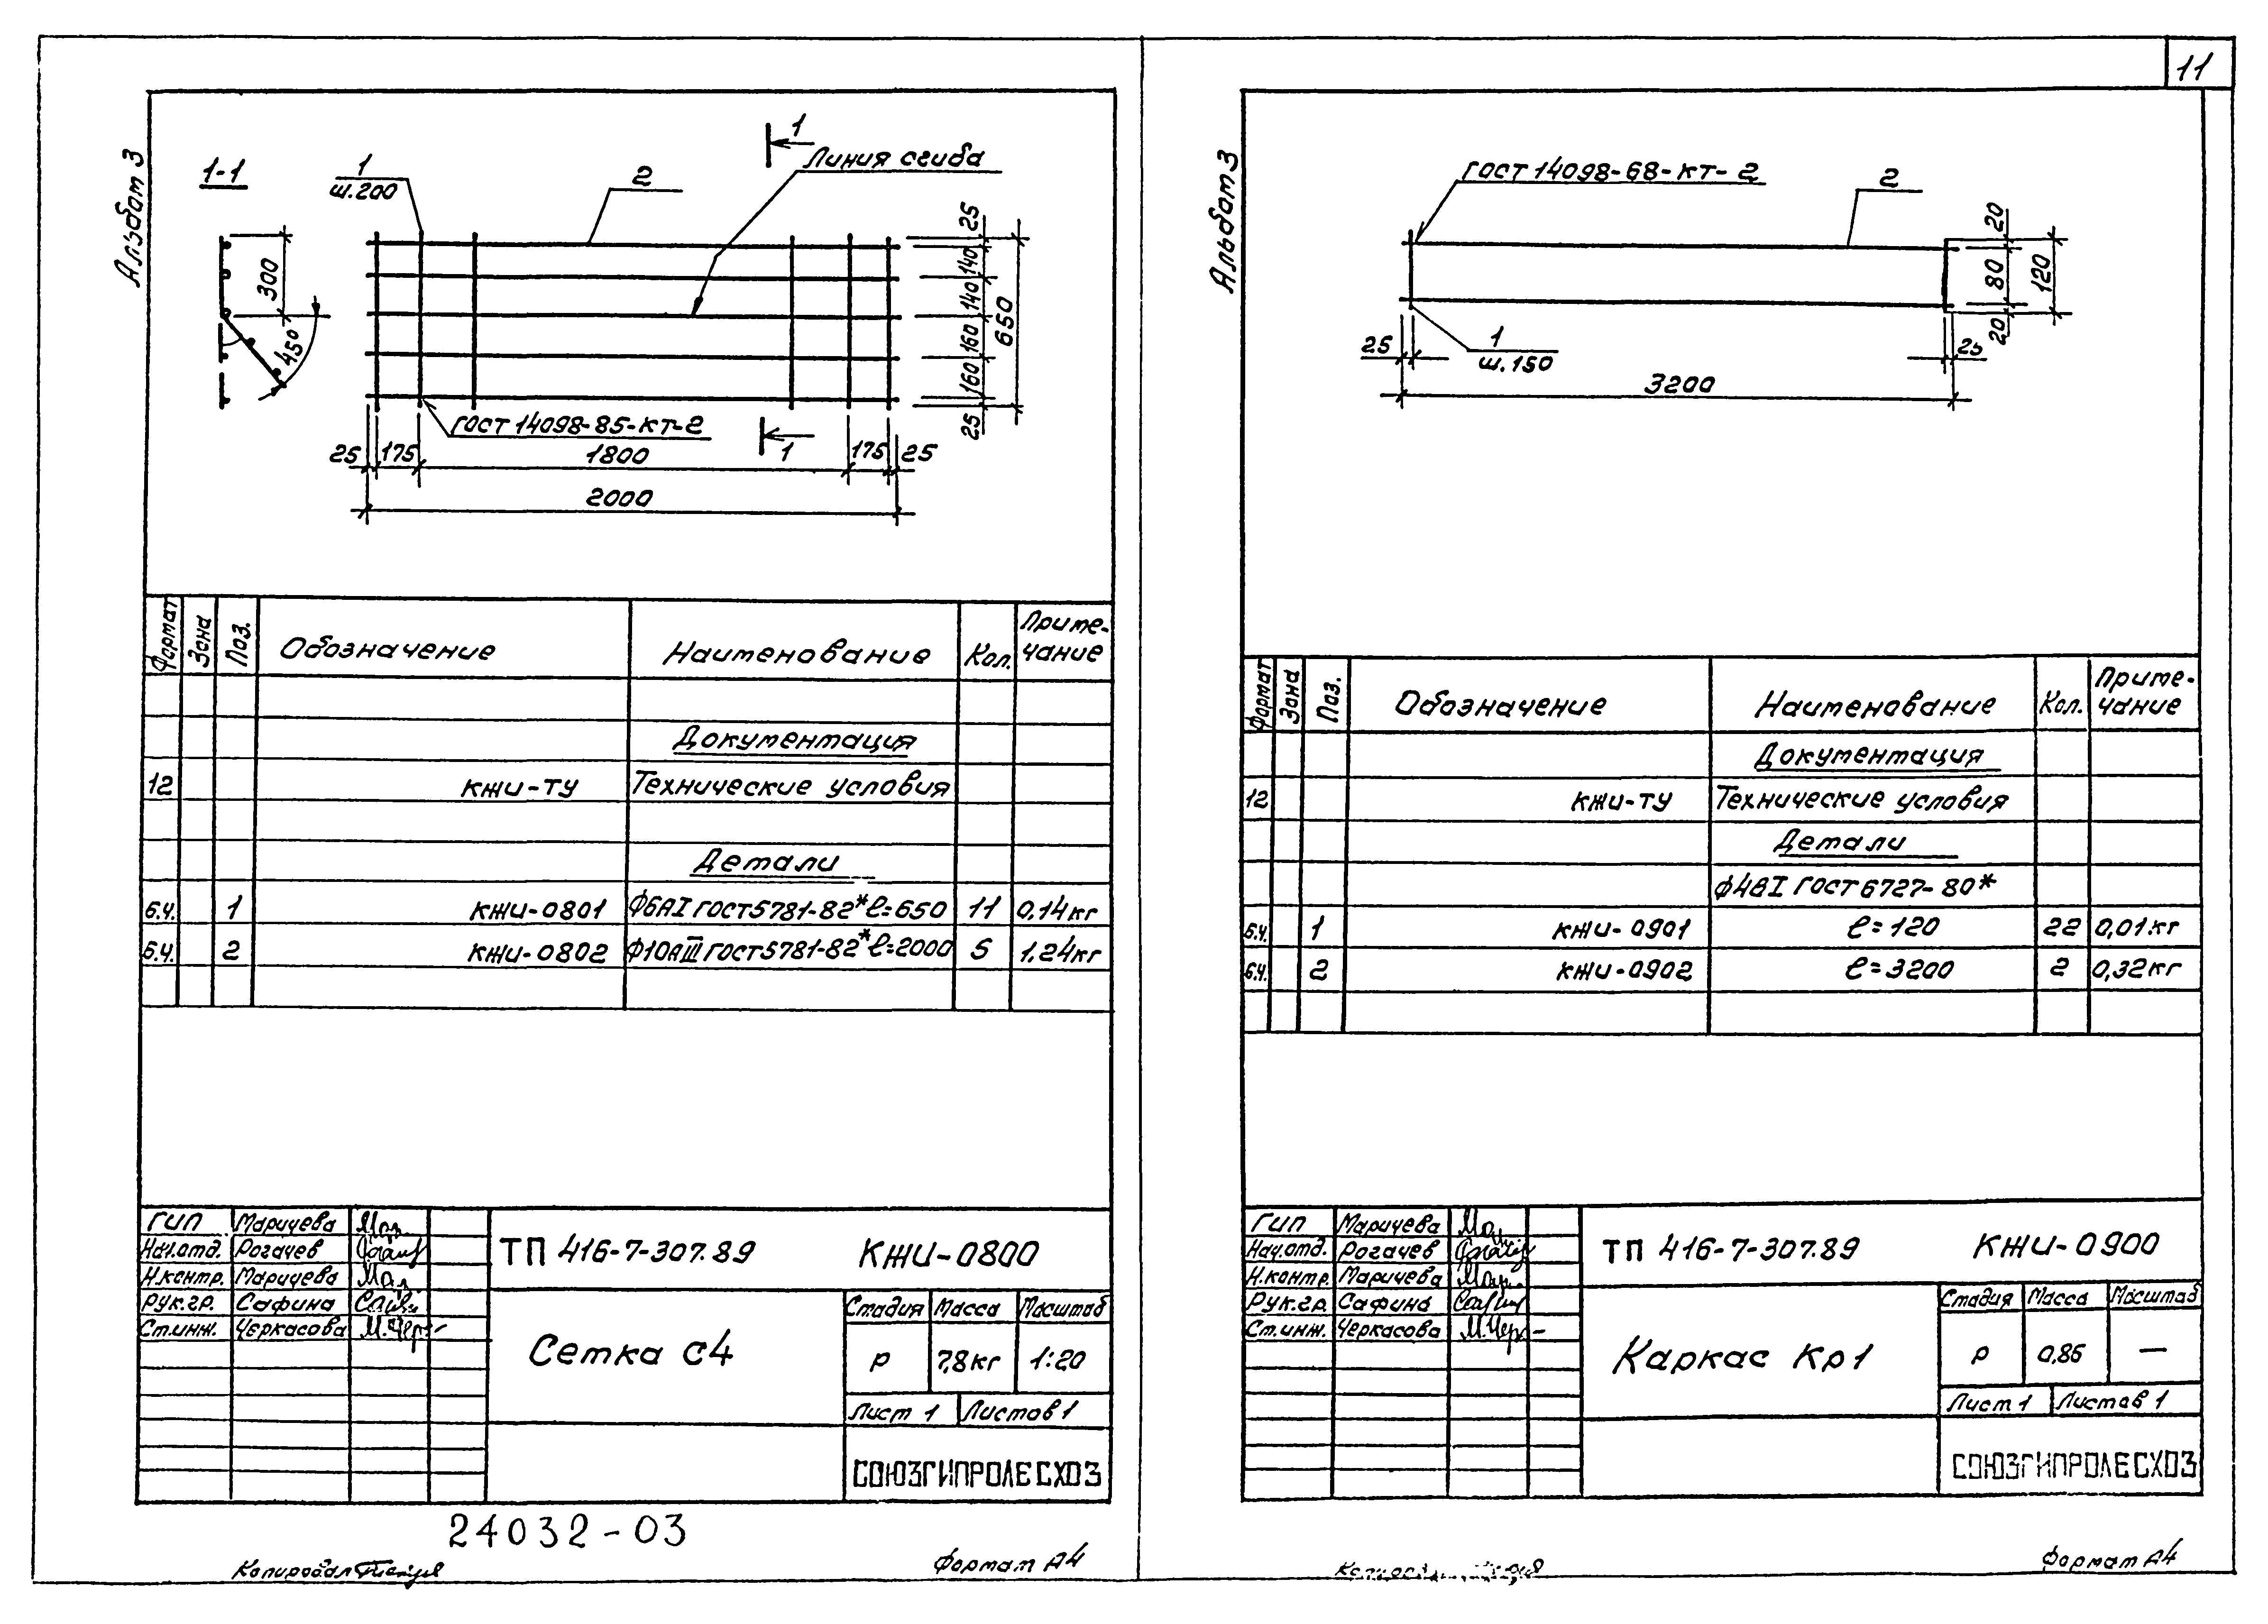 11
Альбом 3
1-1
300
45°
1
ш.200
2
1
Линия сгиба
25
140
140
160
160
25
650
ГОСТ 14098-85-КТ-2
1
25 175 1800 175 25
2000
Формат Зона Поз. Обозначение Наименование Кол. Приме-
чание
Документация
12 КЖИ-ТУ Технические условия
Детали
Б.Ч. 1 КЖИ-0801 Ф6АI ГОСТ 5781-82* ℓ=650 11 0,14кг
Б.Ч. 2 КЖИ-0802 Ф10АIII ГОСТ 5781-82* ℓ=2000 5 1,24кг
ГИП Маричева
Нач.отд. Рогачев
Н.контр. Маричева
Рук.гр. Сафина
Ст.инж. Черкасова
ТП 416-7-307.89 КЖИ-0800
Сетка С4
Стадия Масса Масштаб
Р 7,8кг 1:20
Лист 1 Листов 1
СОЮЗГИПРОЛЕСХОЗ
24032-03
Копировал
Формат А4
Альбом 3
ГОСТ 14098-68-КТ-2
2
20
80
20
120
25
1
ш.150
25
3200
Формат Зона Поз. Обозначение Наименование Кол. Приме-
чание
Документация
12 КЖИ-ТУ Технические условия
Детали
Ф4ВI ГОСТ 6727-80*
Б.Ч. 1 КЖИ-0901 ℓ=120 22 0,01кг
Б.Ч. 2 КЖИ-0902 ℓ=3200 2 0,32кг
ГИП Маричева
Нач.отд. Рогачев
Н.контр. Маричева
Рук.гр. Сафина
Ст.инж. Черкасова
ТП 416-7-307.89 КЖИ-0900
Каркас Кр1
Стадия Масса Масштаб
Р 0,86 —
Лист 1 Листов 1
СОЮЗГИПРОЛЕСХОЗ
Формат А4